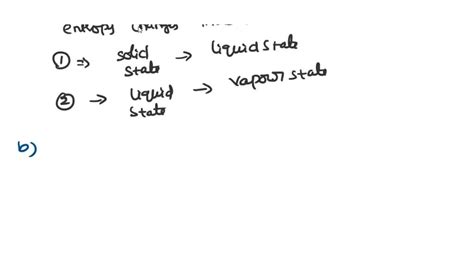 entropy changes
① ⇒ solid state → liquid state
② → liquid state → vapour state
b)